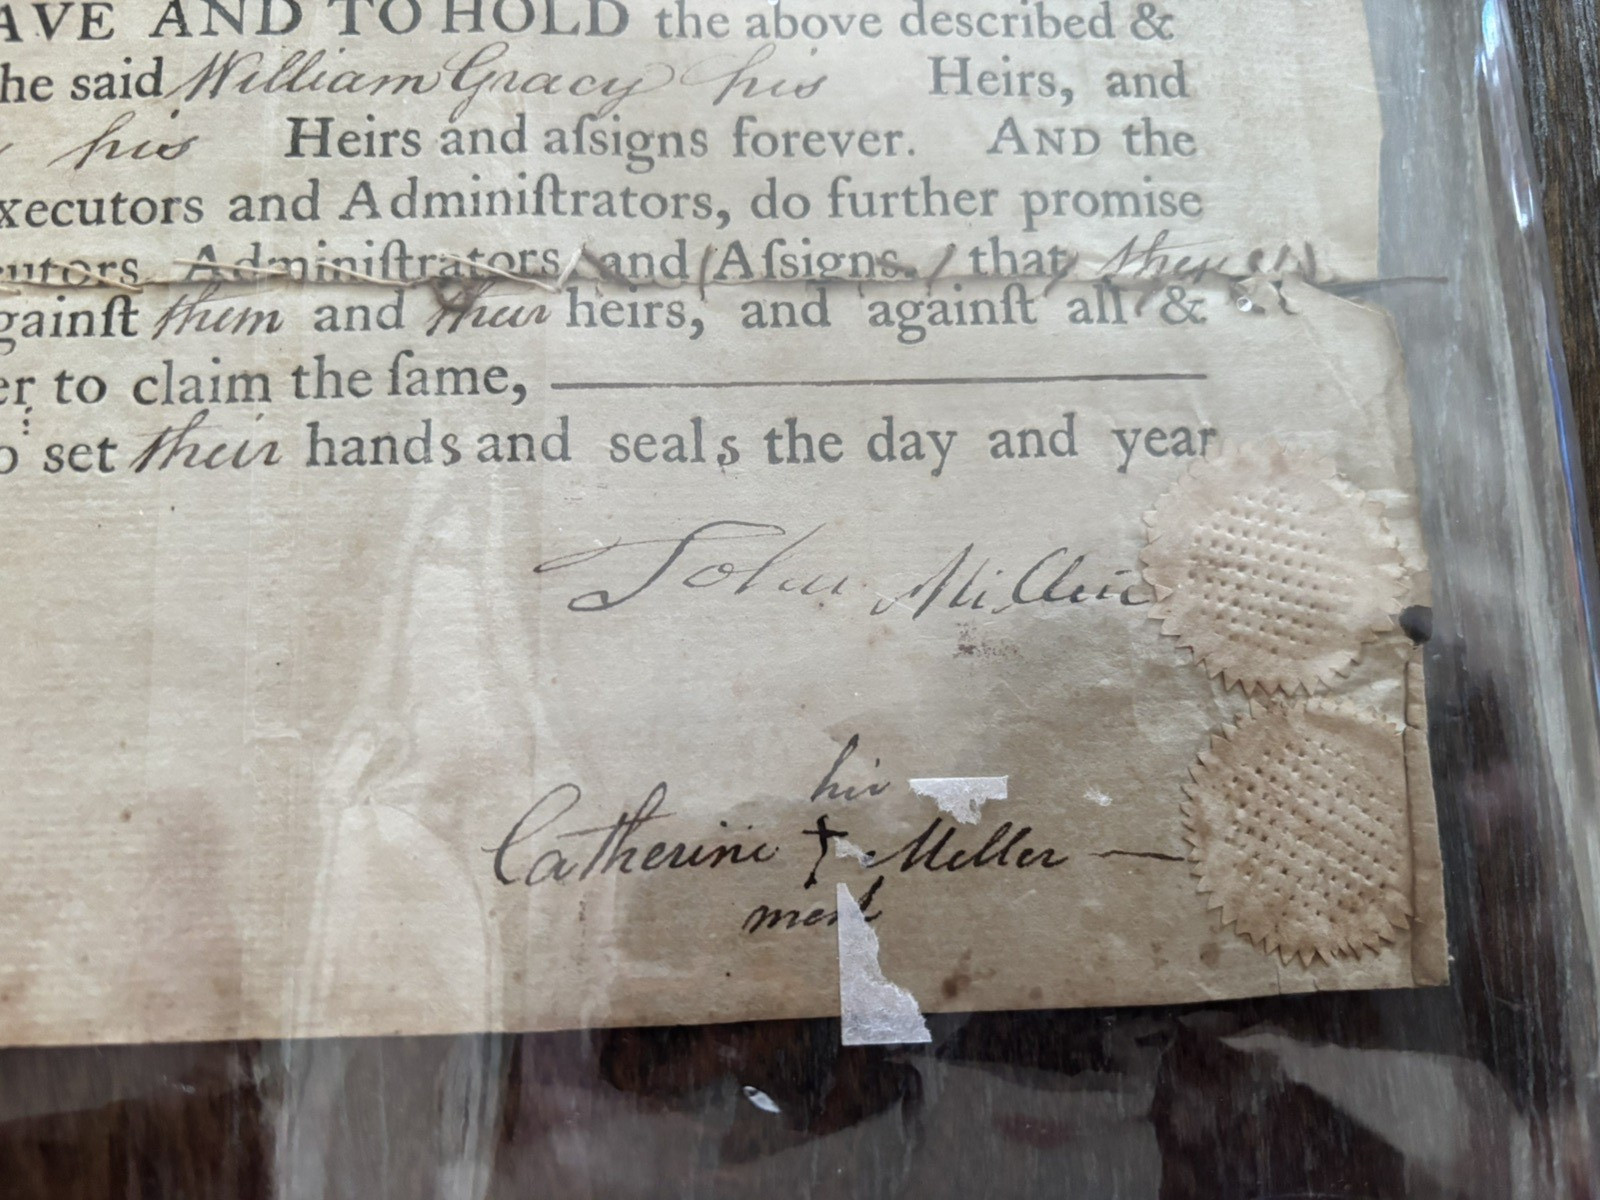 AVE AND TO HOLD the above described &
he said William Gracy his Heirs, and
his Heirs and aſsigns forever. AND the
xecutors and Adminiſtrators, do further promise
cutors Adminiſtrators, and Aſsigns, that they
gainſt them and their heirs, and againſt all &
er to claim the ſame,
o set their hands and seals the day and year
John Miller
his
Catherine † Meller
mark